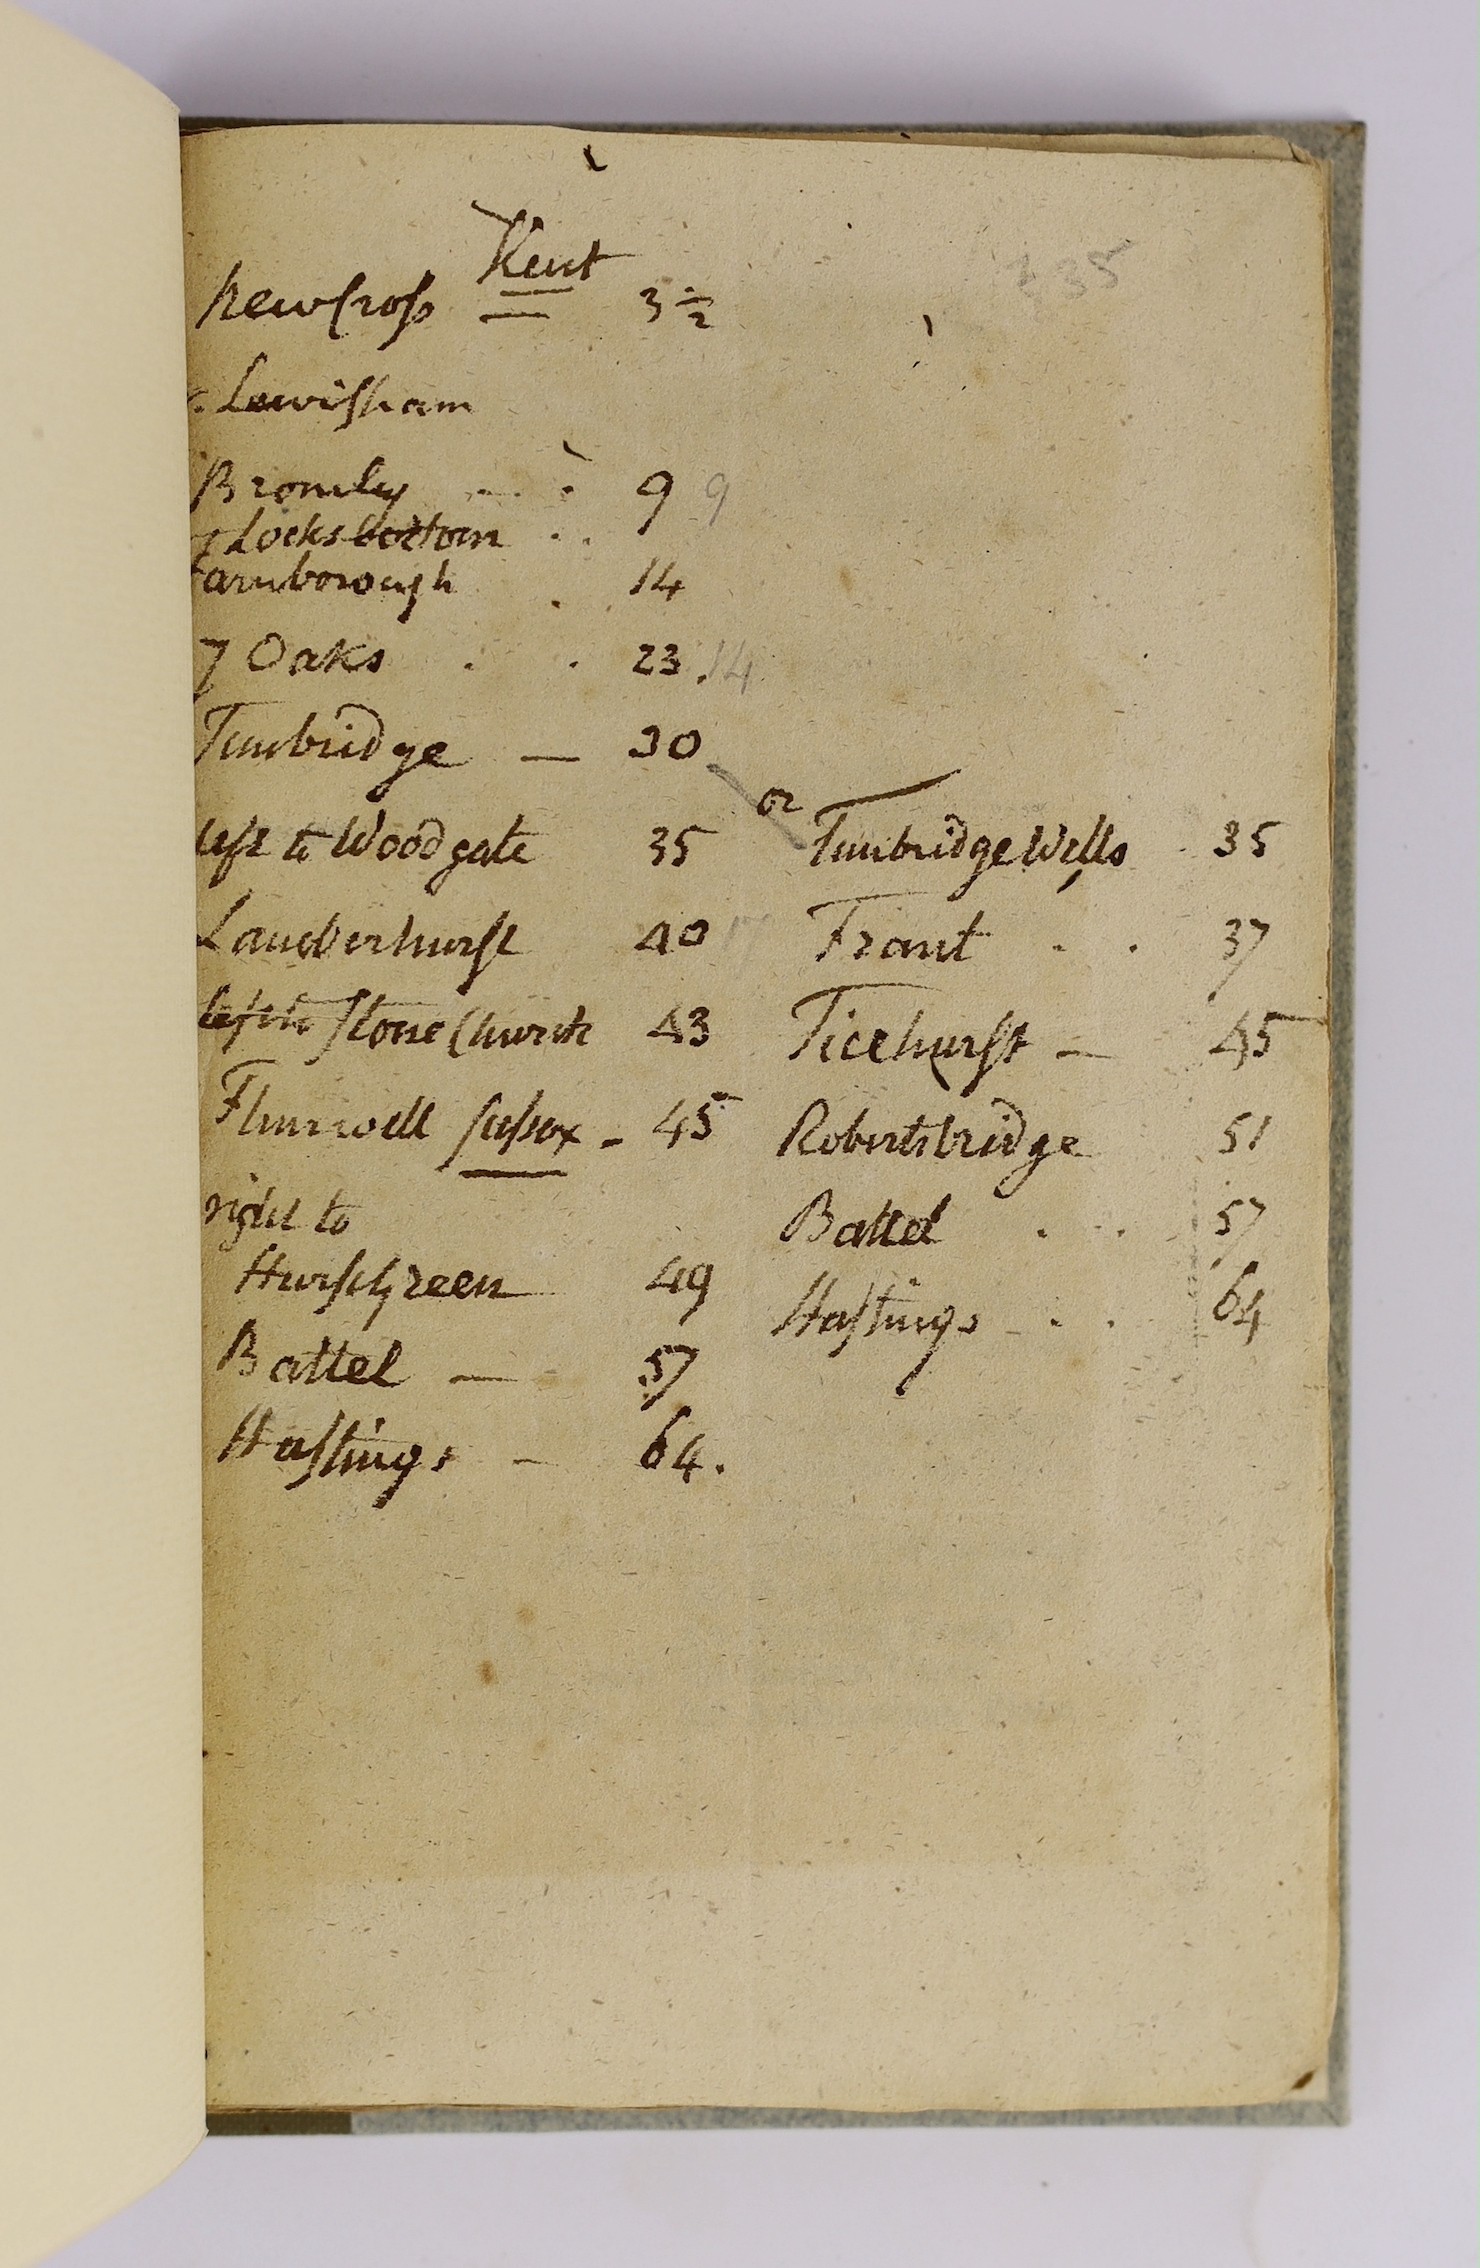 Kent
335
New Cross 3½
Lewisham
Bromley 9 9
Locks bottom
Farnborough 14
7 Oaks 23 . 14
Tunbridge — 30
left to Woodgate 35
Lamberhurst 40
left to Stone Church 43
Flimwell Sussex - 45
right to
Hurst Green 49
Battel — 57
Hastings - 64.
or
Tunbridge Wells 35
Frant 37
Ticehurst — 45
Robertsbridge 51
Battel 57
Hastings 64